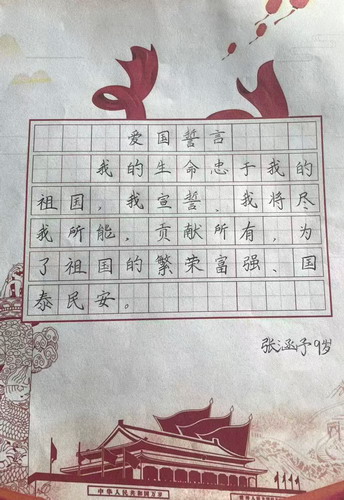 爱国誓言
我的生命忠于我的
祖国，我宣誓、我将尽
我所能，贡献所有，为
了祖国的繁荣富强、国
泰民安。
张涵予9岁
中华人民共和国万岁